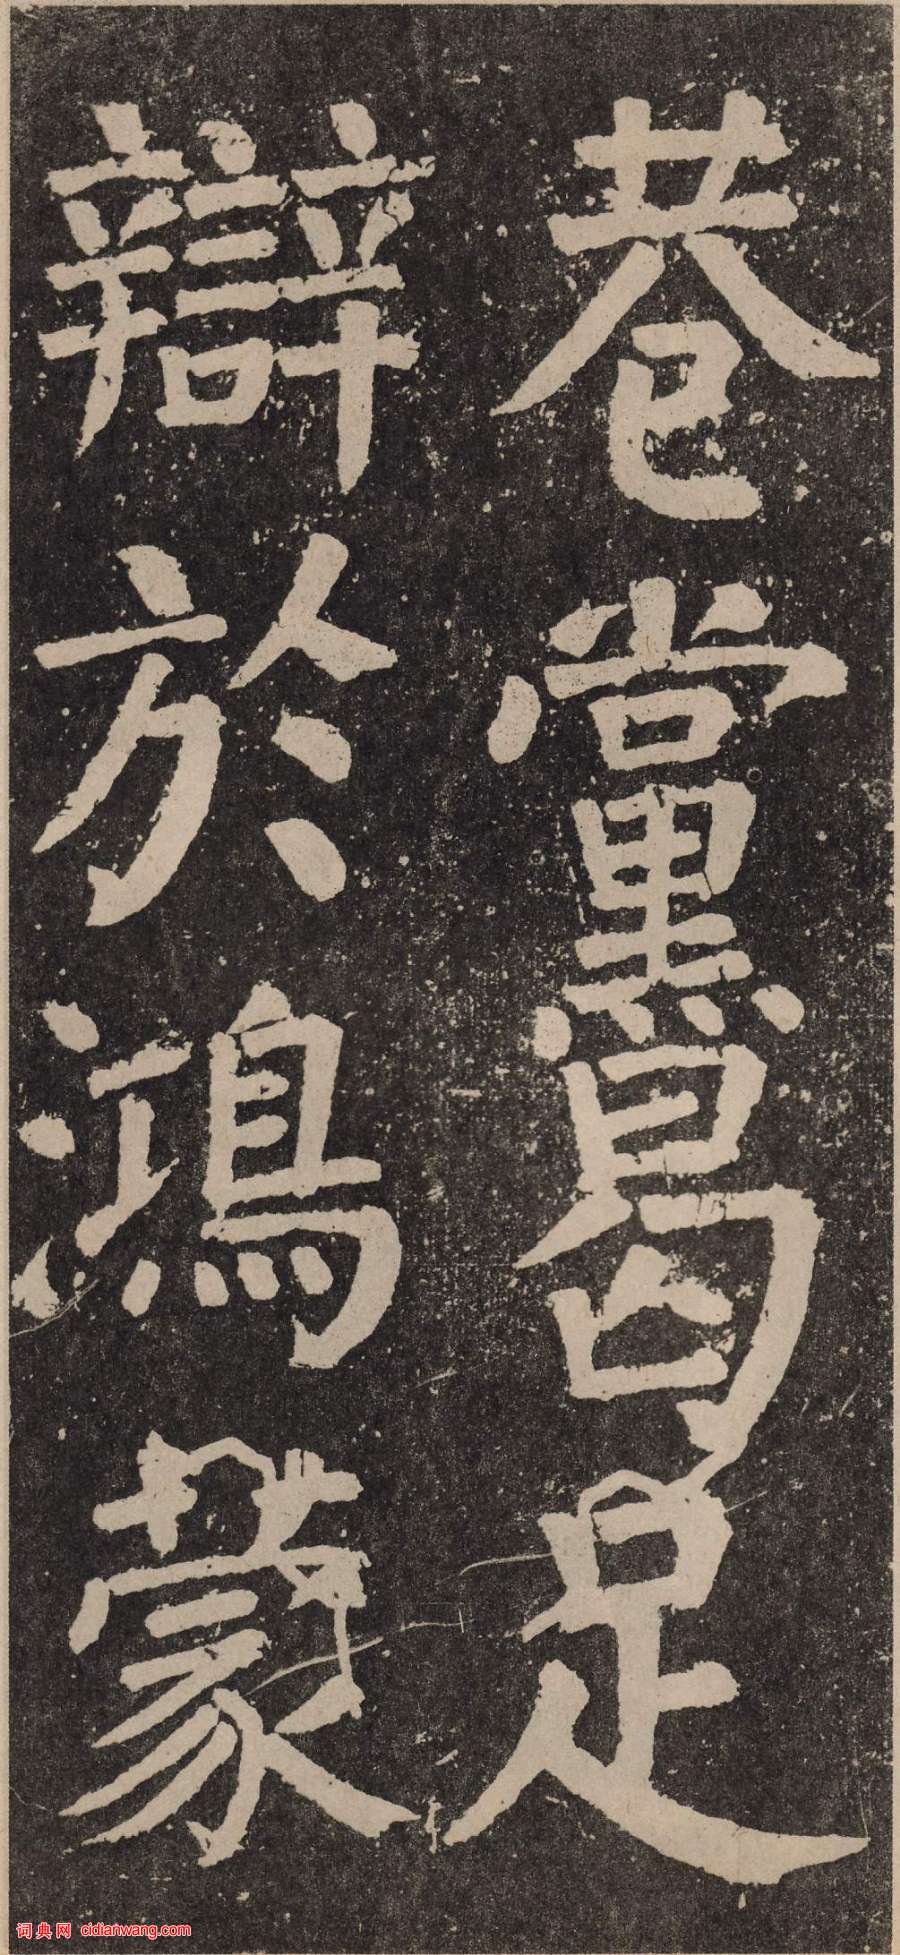 巷黨曷足
辯於鴻蒙
词典网 cidianwang.com